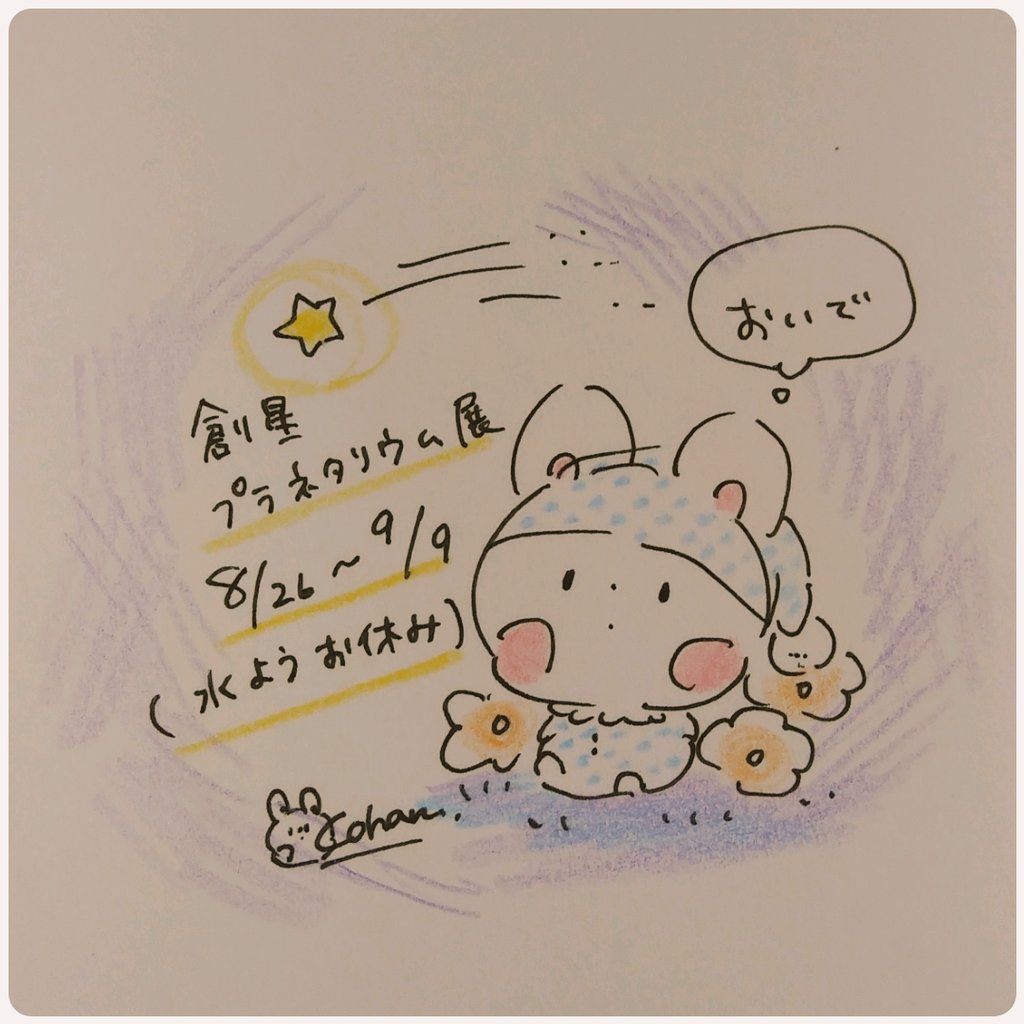 おいで
創星
プラネタリウム展
8/26～9/9
(水ようお休み)
Kohan.